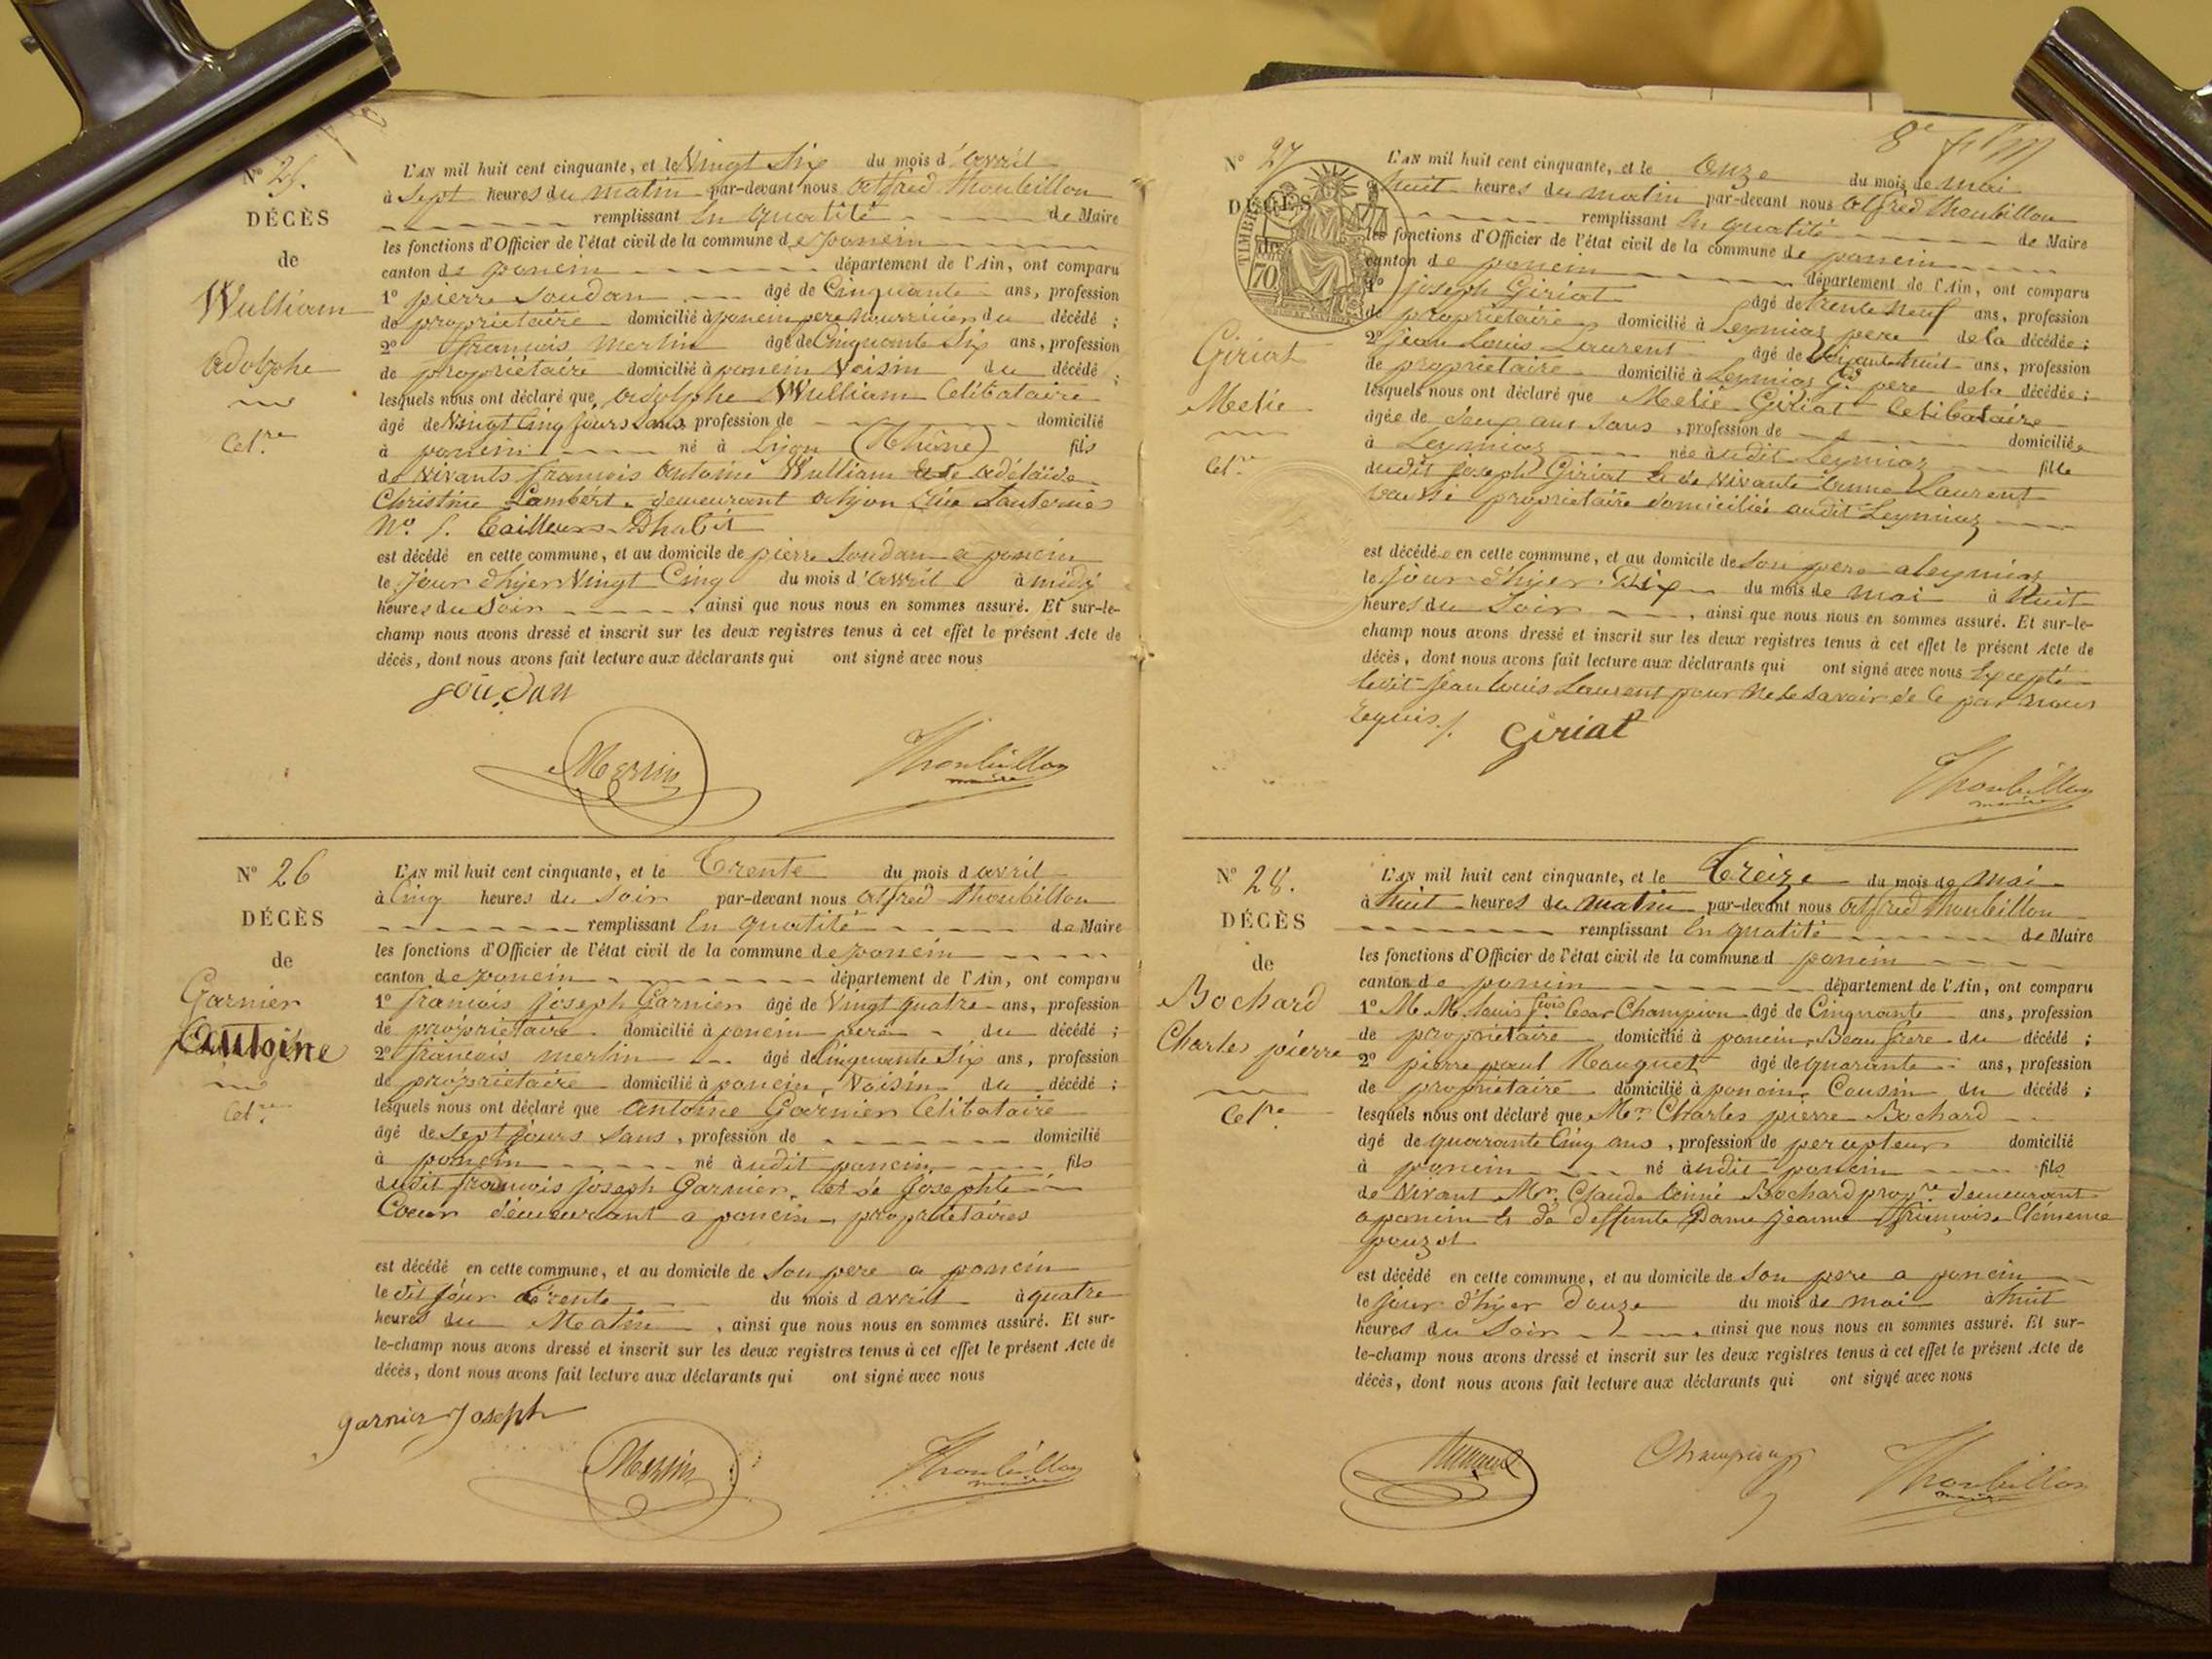 N° 25.
DÉCÈS
de
Wulliam
adolphe
Cel.re
L'AN mil huit cent cinquante, et le Vingt Six du mois d'avril
à Sept heures du matin par-devant nous alfred Thoubillon
remplissant En qualité de Maire
les fonctions d'Officier de l'état civil de la commune de poncin
canton de poncin département de l'Ain, ont comparu
1° pierre Soudan âgé de Cinquante ans, profession
de proprietaire domicilié à poncin pere nourricier du décédé ;
2° françois Merlin âgé de Cinquante Six ans, profession
de propriétaire domicilié à poncin Voisin du décédé ;
lesquels nous ont déclaré que adolphe Wulliam Célibataire
âgé de Vingt Cinq jours sans, profession de domicilié
à poncin né à Lyon (Rhône) fils
de vivants françois antoine Wulliam et de adélaïde
Christine Lambért demeurant a lyon Rue Lanterne
N° 5. tailleurs D'habit
est décédé en cette commune, et au domicile de pierre Soudan a poncin
le jour d'hyer Vingt Cinq du mois d'avril à midy
heures du Soir, ainsi que nous nous en sommes assuré. Et sur-le-
champ nous avons dressé et inscrit sur les deux registres tenus à cet effet le présent Acte de
décès, dont nous avons fait lecture aux déclarants qui ont signé avec nous
Soudan
Merlin
Thoubillon
maire
N° 26
DÉCÈS
de
Garnier
antoine
Cel.re
L'AN mil huit cent cinquante, et le Trente du mois d avril
à Cinq heures du Soir par-devant nous alfred Thoubillon
remplissant En qualité de Maire
les fonctions d'Officier de l'état civil de la commune de poncin
canton de poncin département de l'Ain, ont comparu
1° françois joseph Garnier âgé de Vingt quatre ans, profession
de propriétaire domicilié à poncin pere du décédé ;
2° françois merlin âgé de Cinquante Six ans, profession
de propriétaire domicilié à poncin, Voisin du décédé ;
lesquels nous ont déclaré que antoine Garnier Célibataire
âgé de Sept jours Sans, profession de domicilié
à poncin né àudit poncin fils
dudit françois joseph Garnier et de josephte
Coeur demeurant a poncin propriétaires
est décédé en cette commune, et au domicile de Son pere a poncin
le dit jour trente du mois d avril à quatre
heures du Matin, ainsi que nous nous en sommes assuré. Et sur-
le-champ nous avons dressé et inscrit sur les deux registres tenus à cet effet le présent Acte de
décès, dont nous avons fait lecture aux déclarants qui ont signé avec nous
garnier Joseph
Merlin
Thoubillon
maire
8e
N° 27
DÉCÈS
TIMBRE
70
Giriat
Melie
Cel.re
L'AN mil huit cent cinquante, et le Onze du mois de mai
huit heures du matin par-devant nous alfred Thoubillon
remplissant En qualité de Maire
les fonctions d'Officier de l'état civil de la commune de poncin
canton de poncin département de l'Ain, ont comparu
1° joseph Giriat âgé de trente neuf ans, profession
de propriétaire domicilié à Leymiaz pere de la décédée ;
2° jean Louis Laurent âgé de Soixante huit ans, profession
de propriétaire domicilié à Leymiaz Gd pere de la décédée ;
lesquels nous ont déclaré que Melie Giriat Celibataire
âgée de deux ans sans, profession de domiciliée
à Leymiaz née àudit Leymiaz fille
dudit joseph Giriat et de Vivante Laurent
propriétaire domiciliée audit Leymiaz
est décédée en cette commune, et au domicile de Son pere a leymiaz
le jour d'hyer Dix du mois de mai à huit
heures du Soir, ainsi que nous nous en sommes assuré. Et sur-le-
champ nous avons dressé et inscrit sur les deux registres tenus à cet effet le présent Acte de
décès, dont nous avons fait lecture aux déclarants qui ont signé avec nous Excepté
ledit jean louis Laurent pour ne le savoir de ce par nous
requis./.
Giriat
Thoubillon
maire
N° 28.
DÉCÈS
de
Bochard
Charles pierre
Cel.re
L'AN mil huit cent cinquante, et le Treize du mois de mai
à huit heures du matin par-devant nous alfred Thoubillon
remplissant En qualité de Maire
les fonctions d'Officier de l'état civil de la commune d poncin
canton de poncin département de l'Ain, ont comparu
1° M. M. Louis f.çois Cesar Champion âgé de Cinquante ans, profession
de propriétaire domicilié à poncin, Beau frere du décédé ;
2° pierre paul Rouquet âgé de quarante ans, profession
de propriétaire domicilié à poncin Cousin du décédé ;
lesquels nous ont déclaré que Mr. Charles pierre Bochard
âgé de quarante Cinq ans, profession de percepteur domicilié
à poncin né àudit poncin fils
de Vivant Mr. Claude Bochard propre. demeurant
a poncin et de deffunte Dame jeanne françoise Clémence
pouzol
est décédé en cette commune, et au domicile de Son pere a poncin
le jour d'hyer douze du mois de mai à huit
heures du Soir, ainsi que nous nous en sommes assuré. Et sur-
le-champ nous avons dressé et inscrit sur les deux registres tenus à cet effet le présent Acte de
décès, dont nous avons fait lecture aux déclarants qui ont signé avec nous
Champion
Thoubillon
maire